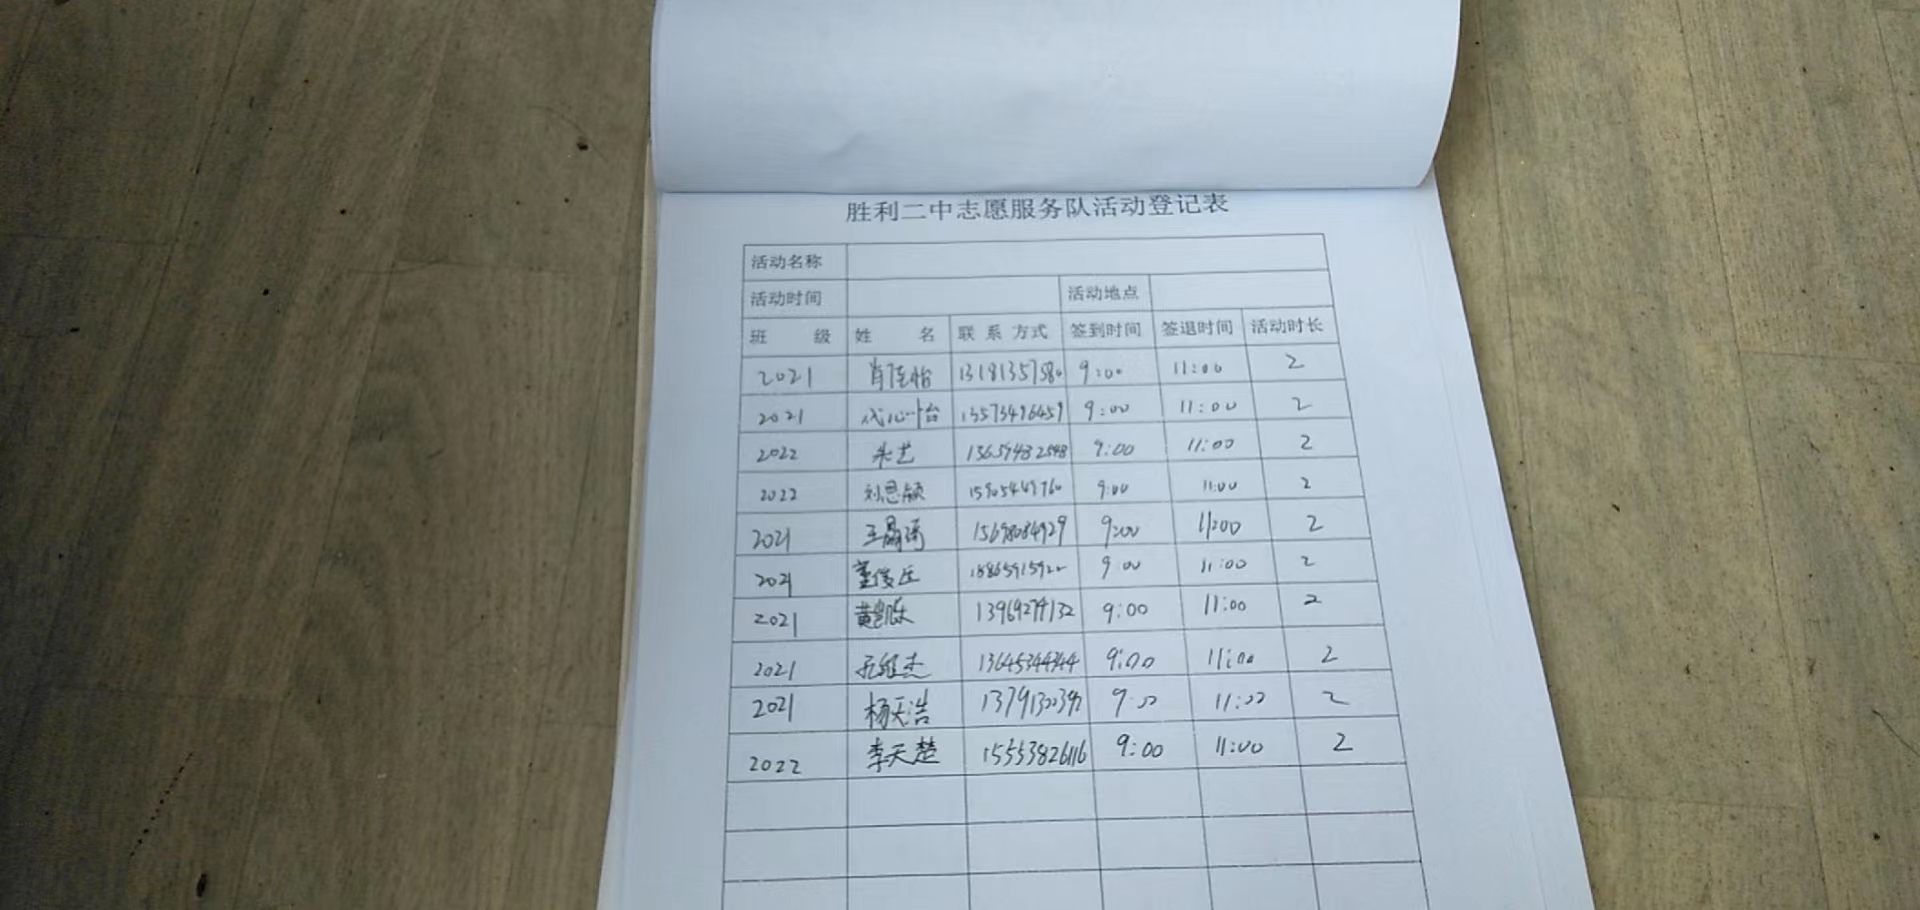 胜利二中志愿服务队活动登记表
活动名称
活动时间 活动地点
班 级 姓 名 联系方式 签到时间 签退时间 活动时长
2021 肖佳怡 13181357580 9:00 11:00 2
2021 13573496459 9:00 11:00 2
2022 朱艺 9:00 11:00 2
2022 刘思颖 15905449760 9:00 11:00 2
2021 15698084929 9:00 11:00 2
2021 9:00 11:00 2
2021 黄凯 13969274132 9:00 11:00 2
2021 13645344344 9:00 11:00 2
2021 杨天浩 9:00 11:00 2
2022 李天楚 15553826116 9:00 11:00 2